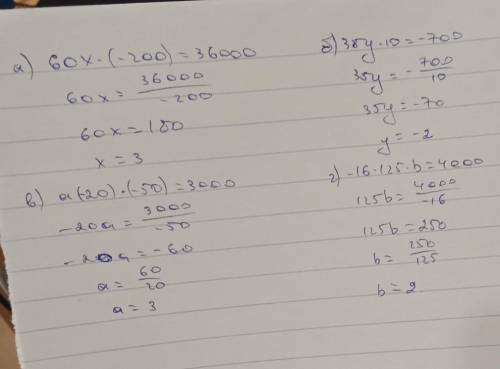 а) 60x · (-200) = 36000
60x = 36000 / -200
60x = 180
x = 3
б) 35y · 10 = -700
35y = - 700 / 10
35y = -70
y = -2
в) a(-20) · (-50) = 3000
-20a = 3000 / -50
-20a = -60
a = 60 / 20
a = 3
г) -16 · 125 · b = 4000
125b = 4000 / -16
125b = 250
b = 250 / 125
b = 2